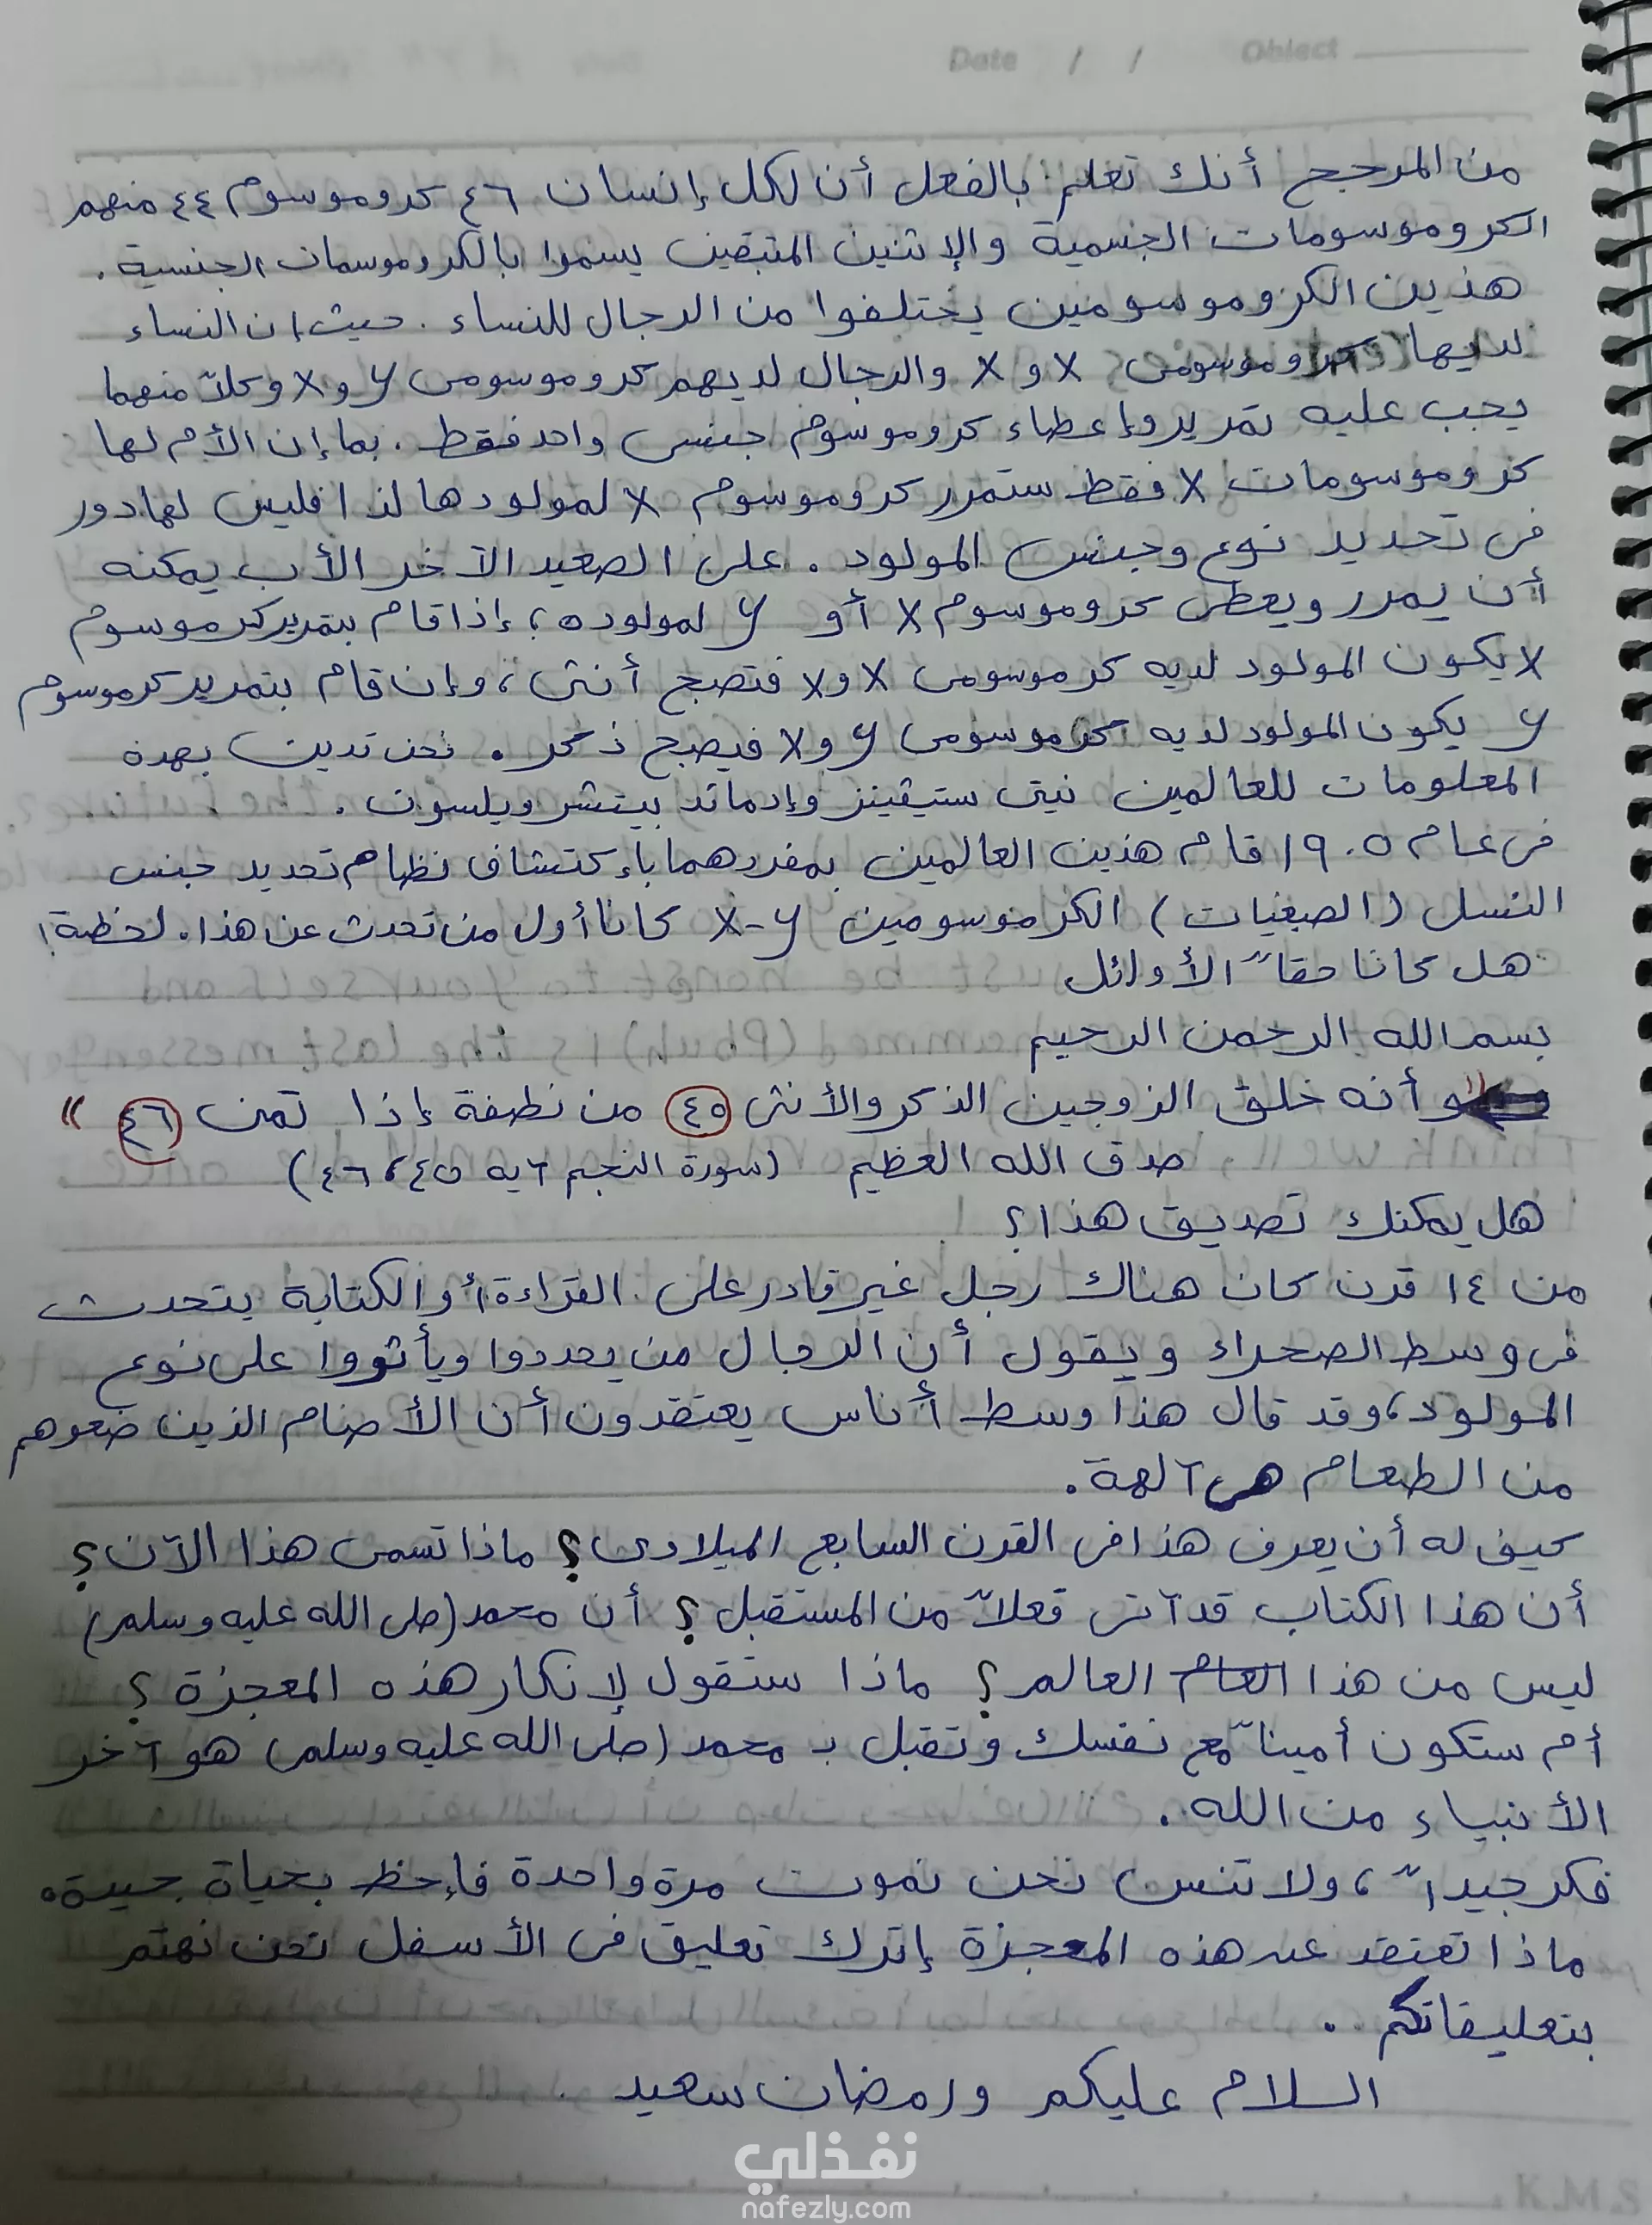 Date / / Object
من المرجح أنك تعلم بالفعل أن لكل إنسان ٤٦ كروموسوم ٤٤ منهم
الكروموسومات الجسمية والإثنين المتبقين يسموا بالكروموسمات الجنسية .
هذين الكروموسومين يختلفوا من الرجال للنساء . حيث إن النساء
لديها كروموسومى X و X والرجال لديهم كروموسومى y و X وكلاً منهما
يجب عليه تمرير وإعطاء كروموسوم جنسى واحد فقط . بما إن الأم لها
كروموسومات X فقط ستمرر كروموسوم X لمولودها لذا فليس لها دور
فى تحديد نوع وجنس المولود . على الصعيد الآخر الأب يمكنه
أن يمرر ويعطى كروموسوم X أو y لمولوده ؛ إذا قام بتمرير كرموسوم
X يكون المولود لديه كرموسومى X و X فتصبح أنثى ، وإن قام بتمرير كرموسوم
y يكون المولود لديه كرموسومى y و X فيصبح ذكر . نحن ندين بهده
المعلومات للعالمين نيتى ستيفينز وإدماند بيتشر ويلسون .
فى عام ١٩٠٥ قام هذين العالمين بمفردهما بإكتشاف نظام تحديد جنس
النسل (الصبغيات) الكرموسومين X-y كانا أول من تحدث عن هذا . لحظة !
هل كانا حقاً الأوائل
بسم الله الرحمن الرحيم
" وأنه خلق الزوجين الذكر والأنثى ٤٥ من نطفة إذا تمنى ٤٦ "
صدق الله العظيم (سورة النجم آيه ٤٥ ، ٤٦)
هل يمكنك تصديق هذا ؟
من ١٤ قرن كان هناك رجل غير قادر على القراءة أو الكتابة يتحدث
فى وسط الصحراء ويقول أن الرجال من يحددوا ويأثروا على نوع
المولود ، وقد قال هذا وسط أناس يعتقدون أن الأصنام الذين صنعوهم
من الطعام هى آلهة .
كيف له أن يعرف هذا فى القرن السابع الميلادى ؟ ماذا تسمى هذا الآن ؟
أن هذا الكتاب قد آتى فعلاً من المستقبل ؟ أن محمد (صلى الله عليه وسلم)
ليس من هذا العالم ؟ ماذا ستقول لإنكار هذه المعجزة ؟
أم ستكون أميناً مع نفسك وتقبل بـ محمد (صلى الله عليه وسلم) هو آخر
الأنبياء من الله .
فكر جيداً ، ولا تنسى نحن نموت مرة واحدة فإحظ بحياة جيدة .
ماذا تعتقد عن هذه المعجزة إترك تعليق فى الأسفل نحن نهتم
بتعليقاتكم .
السلام عليكم ورمضان سعيد
نفذلي
nafezly.com
K.M.S